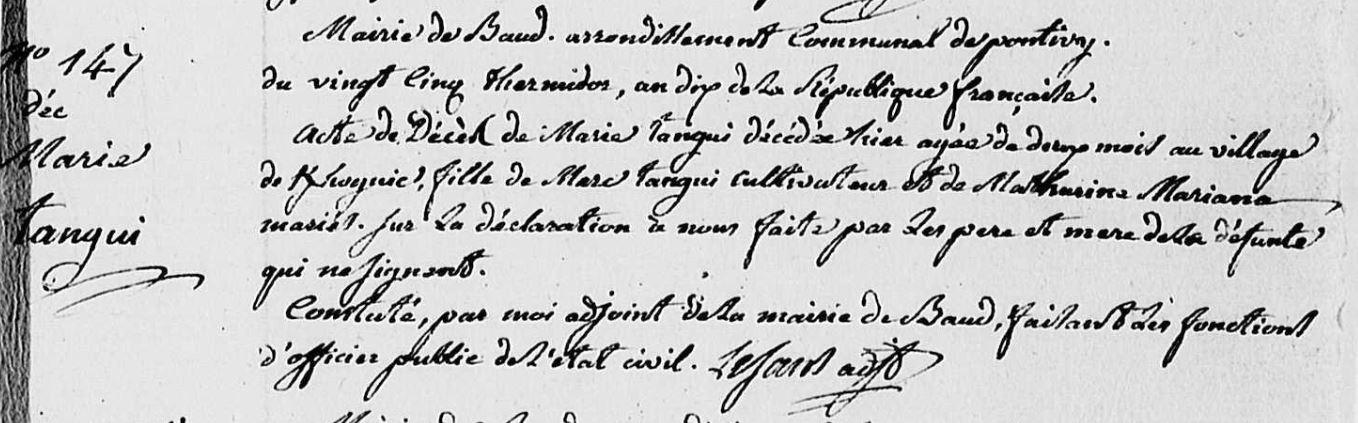 No 147
déc
Marie
tangui
Mairie de Baud. arrondissement Communal de pontivy.
du vingt Cinq thermidor, an dix de la République française.
Acte de Décès de Marie tangui décédée hier agée de deux mois au village
de fille de Marc tangui cultivateur et de Mathurine Mariana
mariés. sur la déclaration à nous faite par les pere et mere de la défunte
qui ne signent.
Constaté, par moi adjoint de la mairie de Baud, faisant les fonctions
d'officier public de l'état civil. adjt